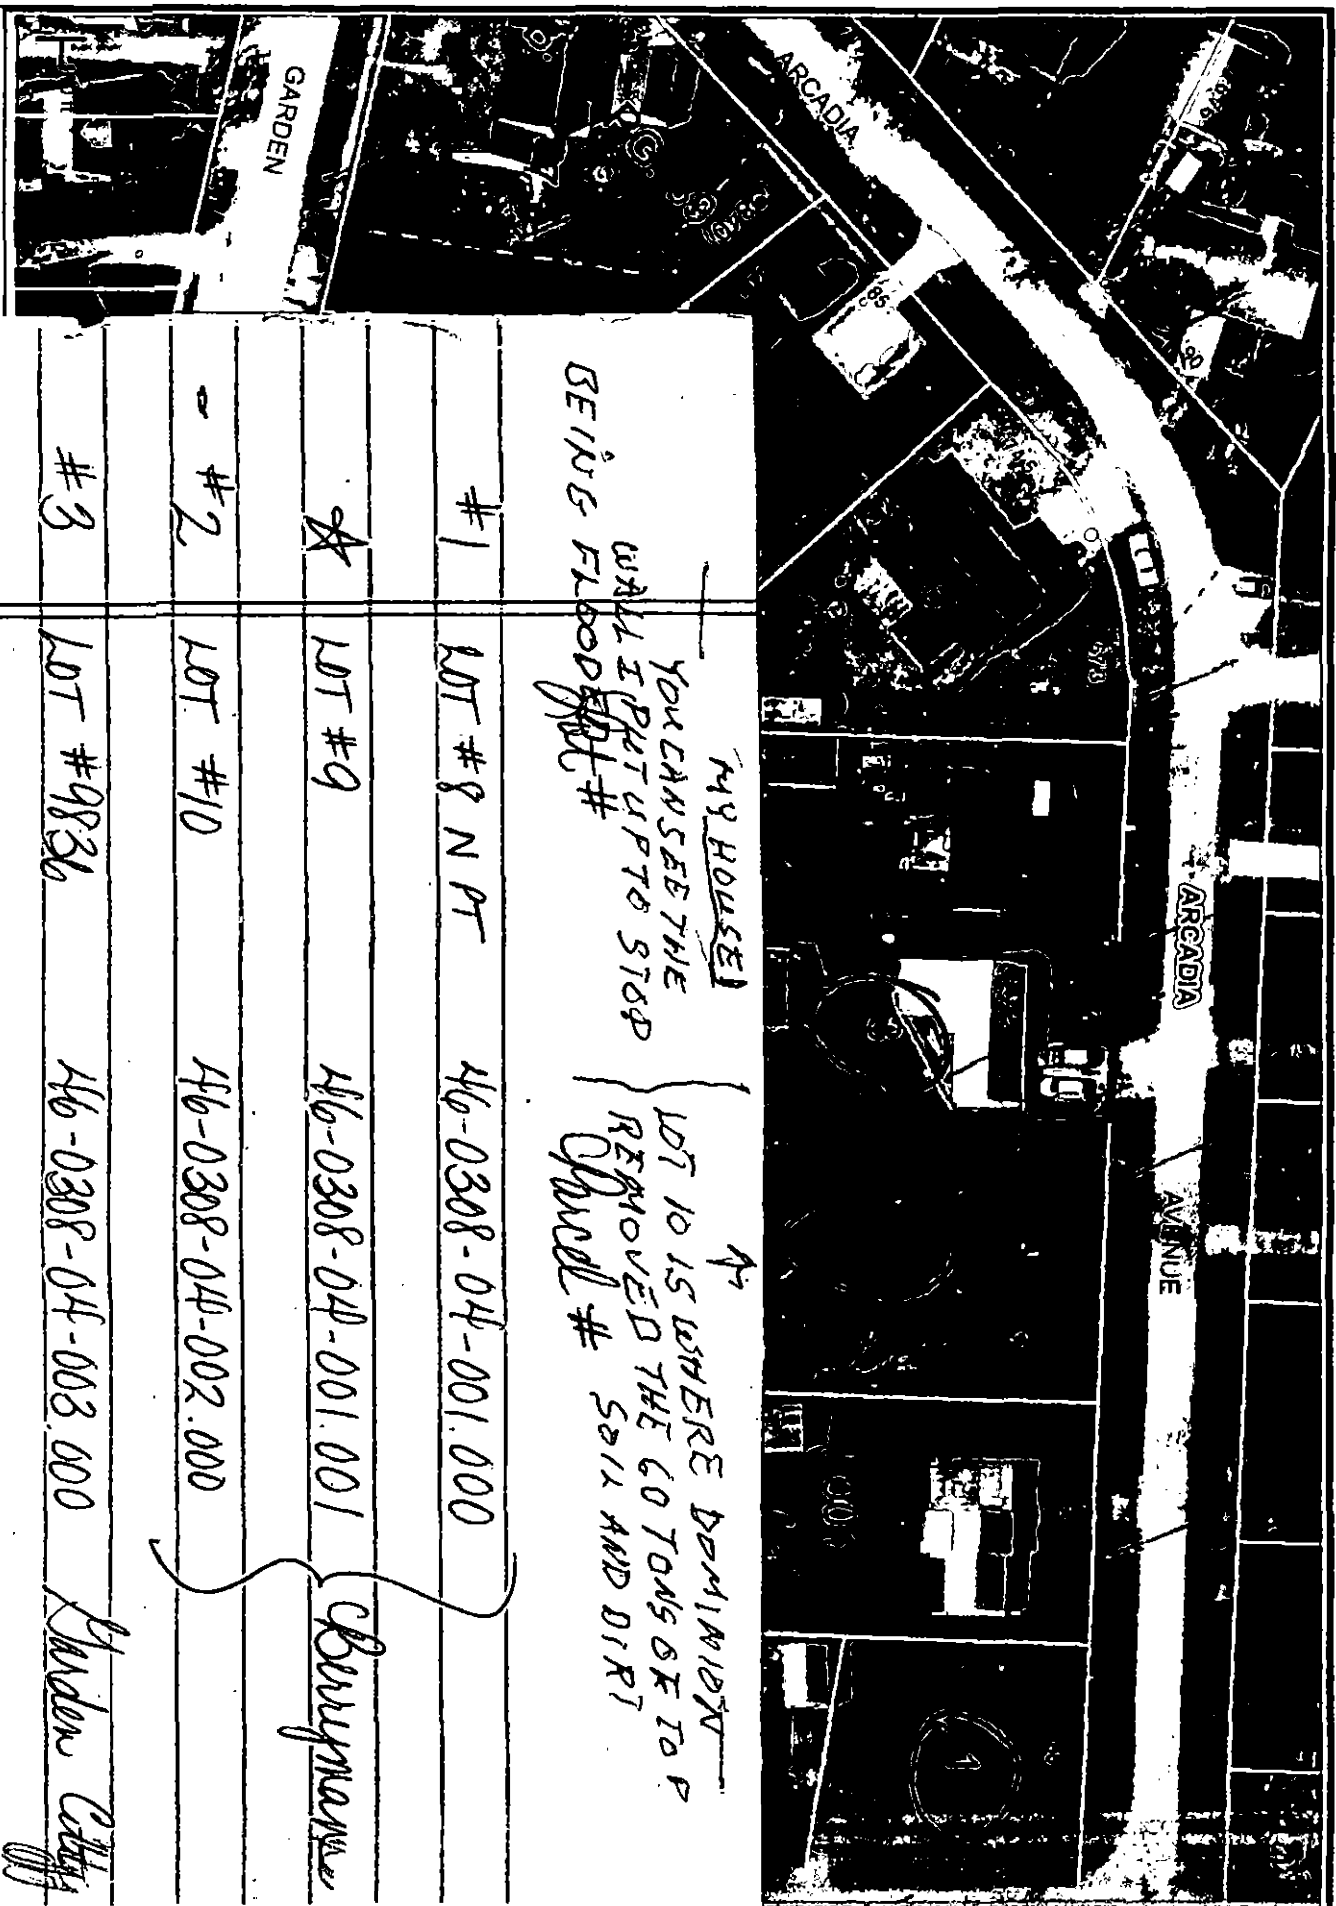 GARDEN
ARCADIA
85
90
578
ARCADIA
AVENUE
MY HOUSE
YOU CAN SEE THE
WALL I PUT UP TO STOP
BEING FLOODED
LOT 10 IS WHERE DOMINION
REMOVED THE 60 TONS OF TOP
SOIL AND DIRT
Lot # Parcel #
#1 LOT #8 N PT 46-0308-04-001.000
☆ LOT #9 46-0308-04-001.001
- #2 LOT #10 46-0308-04-002.000
Berryman
#3 LOT #9836 46-0308-04-003.000 Garden City